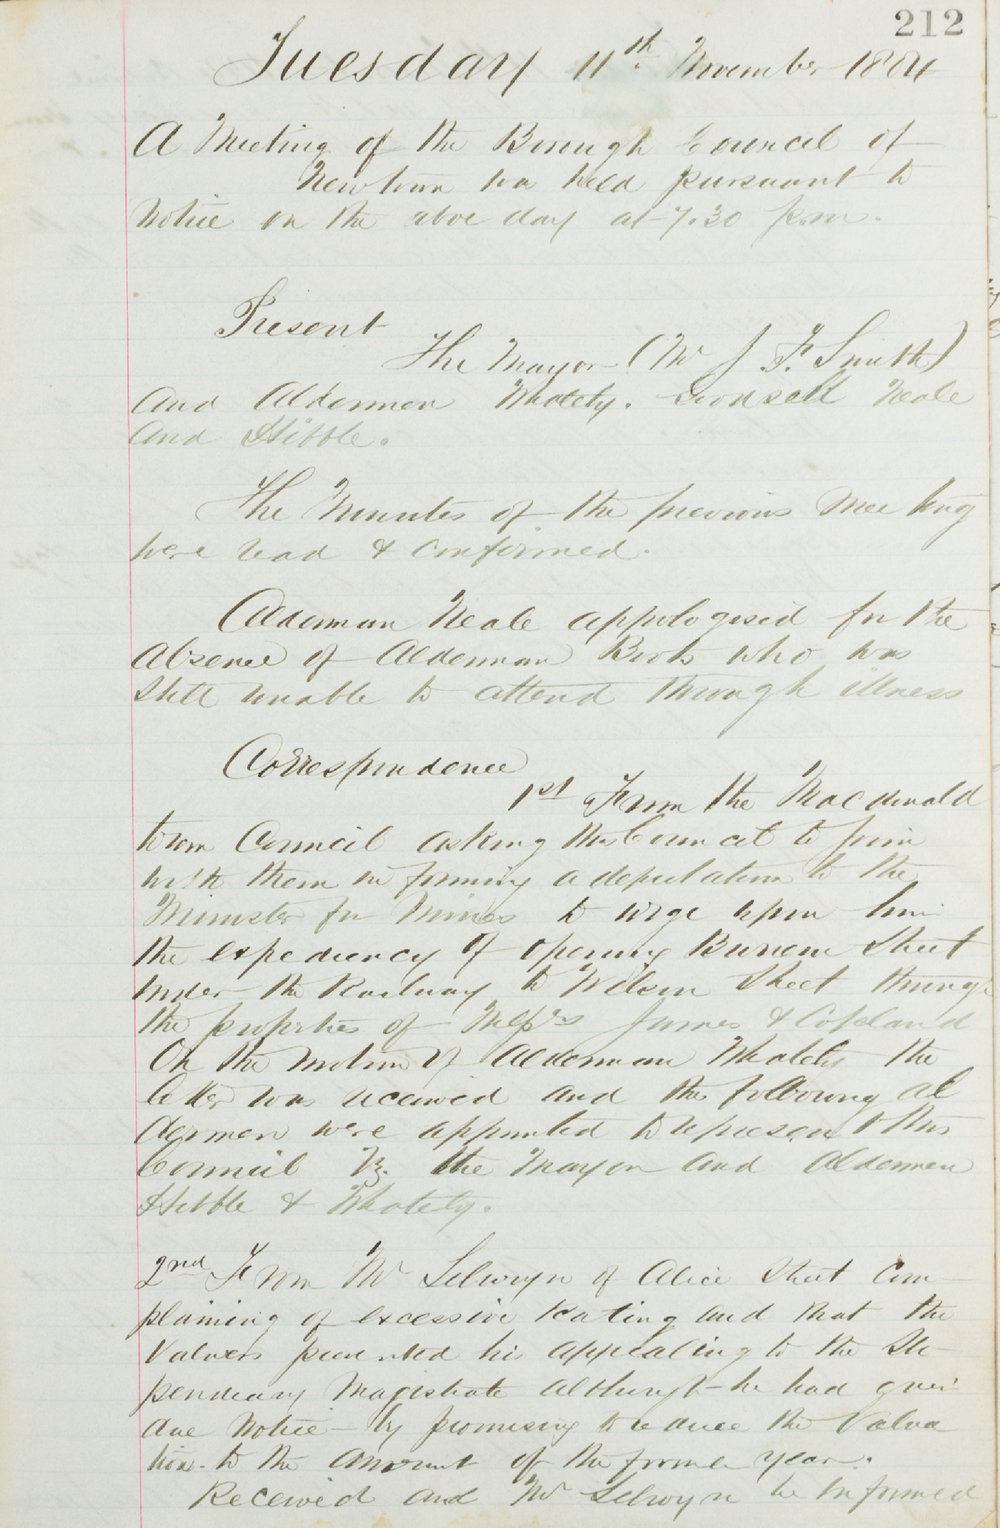 212
Tuesday 11th November 1884
A Meeting of the Borough Council of
Newtown was held pursuant to
Notice on the above day at 7.30 p.m.
Present
The Mayor (Mr J. F. Smith)
and Aldermen Whately. Goodsell Neale
and Hibble.
The Minutes of the previous Meeting
were read & confirmed.
Alderman Neale appologised for the
absence of Alderman Boots who was
still unable to attend through illness
Correspondence
1st From the Macdonald
town Council asking this Council to join
with them in forming a deputation to the
Minister for Mines to urge upon him
the expediency of opening Burren Street
under the Railway to Wilson Street through
the properties of Messrs James & Copeland
On the motion of Alderman Whately the
letter was received and the following al
dermen were appointed to represent this
Council Viz. the Mayor and Aldermen
Hibble & Whately.
2nd From Mr Selwyn of Alice Street Com
plaining of excessive Rating and that the
Valuers prevented his appealing to the Sti
pendiary Magistrate although he had given
due Notice by promising to reduce the Valua
tion to the amount of the former year.
Received and Mr Selwyn be informed